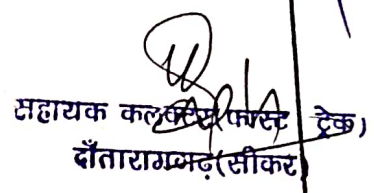 सहायक कलक्टर (फास्ट ट्रेक)
दाँतारामगढ़ (सीकर)